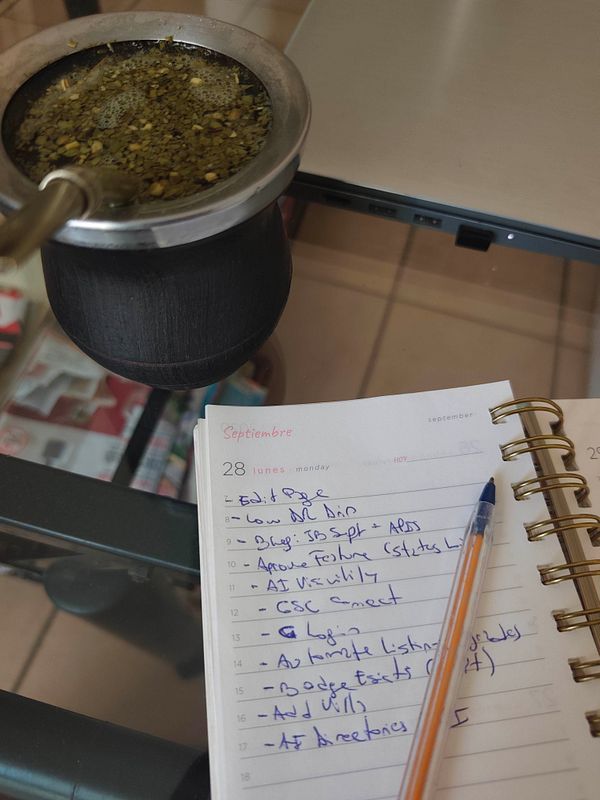 Septiembre
september
28 lunes monday
HOY
29
7 - Edit Page
8 - Low DR
9 - Blog: Sept +
10 - Approve Feature (states
11 - AI Visibility
12 - GSC Connect
13 - Login
14 - Automate Listing
15 - Badge Exists
16 - Add
17 - AI Directories I
18